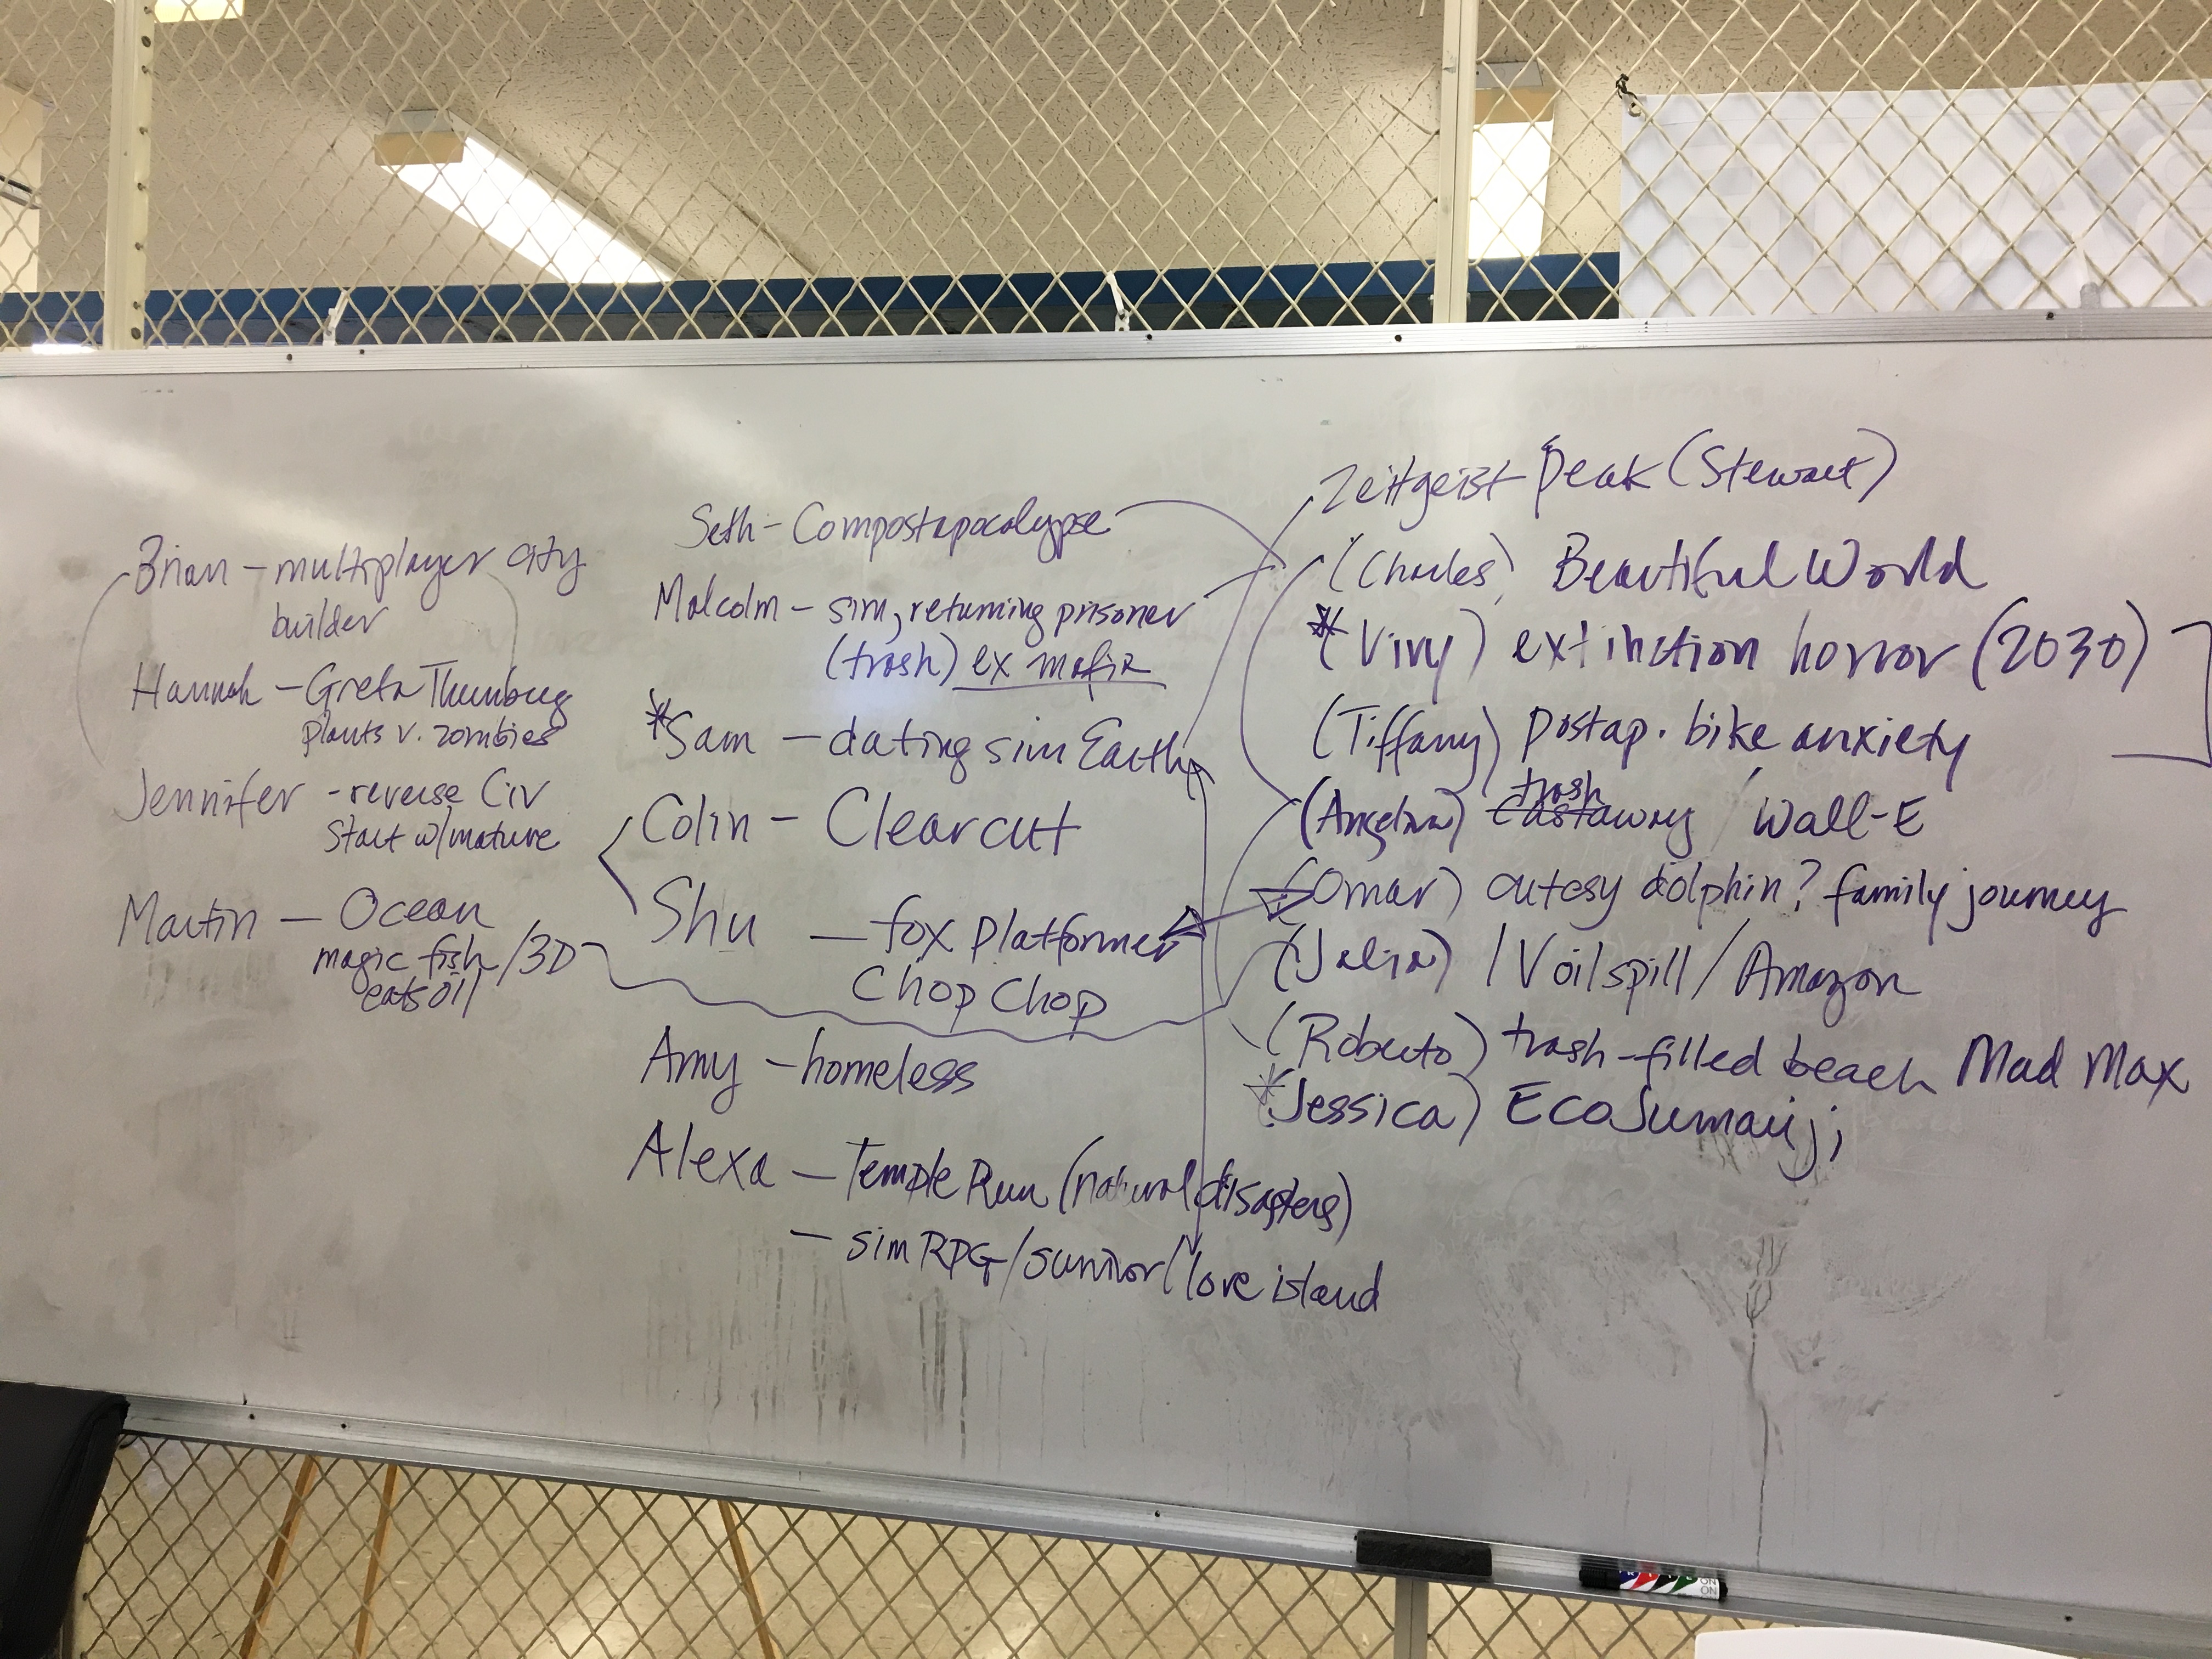 Brian - multiplayer city
builder
Hannah - Greta Thunberg
plants v. zombies
Jennifer - reverse Civ
start w/mature
Martin - Ocean
magic fish /3D
eats oil
Seth - Compostapocalypse
Malcolm - sim, returning prisoner
(trash) ex mafia
*Sam - dating sim Earth
Colin - Clearcut
Shu - fox platformer
Chop Chop
Amy - homeless
Alexa - Temple Run (natural disasters)
- sim RPG/survivor/love island
Zeitgeist Peak (Stewart)
(Charles) Beautiful World
*(Vivy) extinction horror (2030)
(Tiffany) postap. bike anxiety
trash
(Angelina) castaway / Wall-E
(Omar) cutesy dolphin? family journey
(Julia) / V oil spill / Amazon
(Roberto) trash-filled beach Mad Max
*(Jessica) EcoJumanji